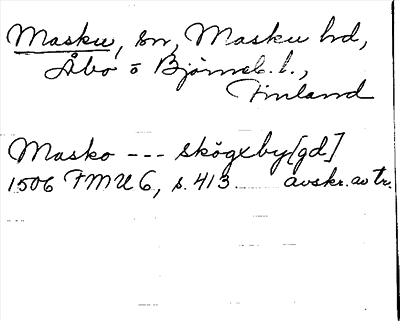 Masku, sn, Masku hd,
Åbo o Björneb. l.,
Finland
Masko --- skögxby [gd]
1506 FMU 6, s. 413 avskr. av tr.